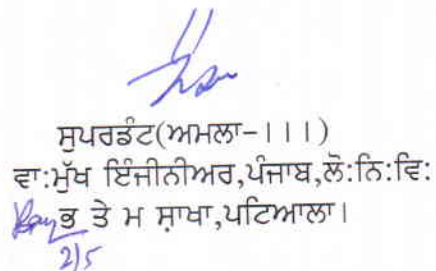 ਸੁਪਰਡੰਟ(ਅਮਲਾ-।।।)
ਵਾ:ਮੁੱਖ ਇੰਜੀਨੀਅਰ,ਪੰਜਾਬ,ਲੋ:ਨਿ:ਵਿ:
ਭ ਤੇ ਮ ਸ਼ਾਖਾ,ਪਟਿਆਲਾ।
2/5